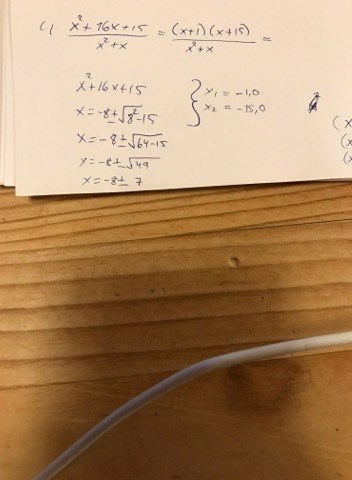 c) x²+16x+15 / x²+x = (x+1)(x+15) / x²+x =
x²+16x+15
x=-8±√8²-15
x=-8±√64-15
x=-8±√49
x=-8± 7
x₁ = -1,0
x₂ = -15,0
(x
(x
(x